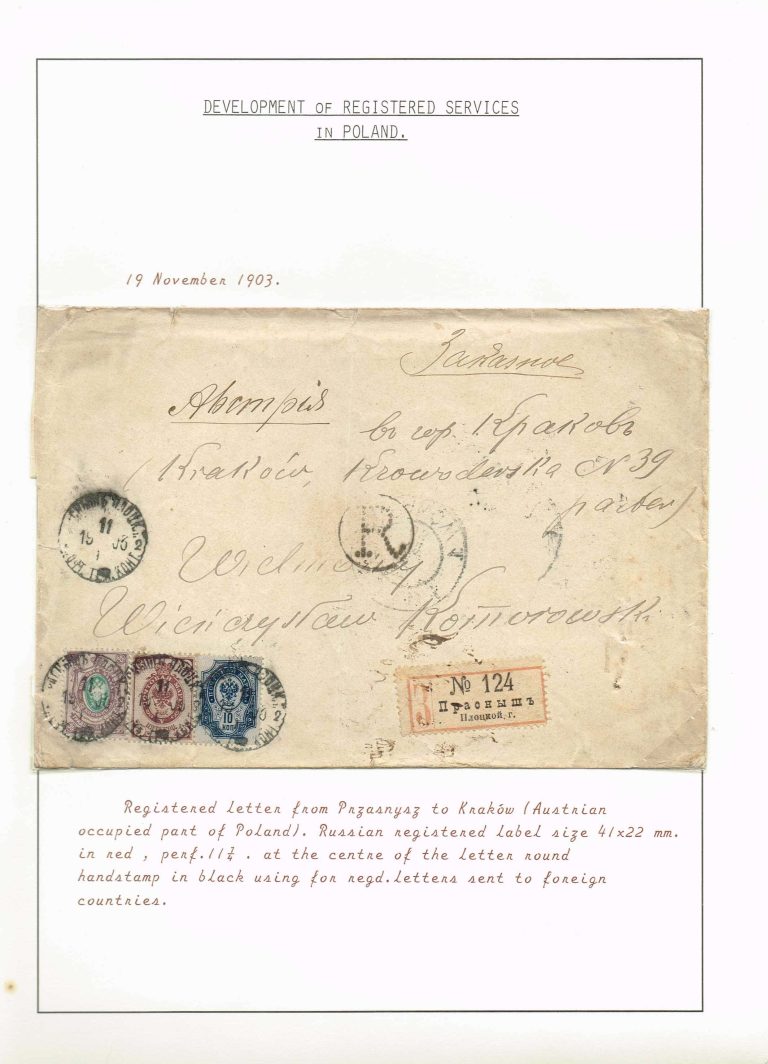 DEVELOPMENT OF REGISTERED SERVICES
IN POLAND.
19 November 1903.
Заказное
Австрія
въ гор. Краковъ
(Kraków, Krowoderska N 39
parter)
R
Wielmożny
Wieńczysław Komorowski
11
19
10
КОП
З
№ 124
Праснышъ
Плоцкой г.
Registered letter from Przasnysz to Kraków (Austrian
occupied part of Poland). Russian registered label size 41x22 mm.
in red , perf.11½ . at the centre of the letter round
handstamp in black using for regd.letters sent to foreign
countries.